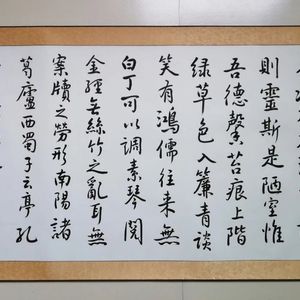 則靈斯是陋室惟
吾德馨苔痕上階
綠草色入簾青談
笑有鴻儒往來無
白丁可以調素琴閱
金經無絲竹之亂耳無
案牘之勞形南陽諸
葛廬西蜀子云亭孔